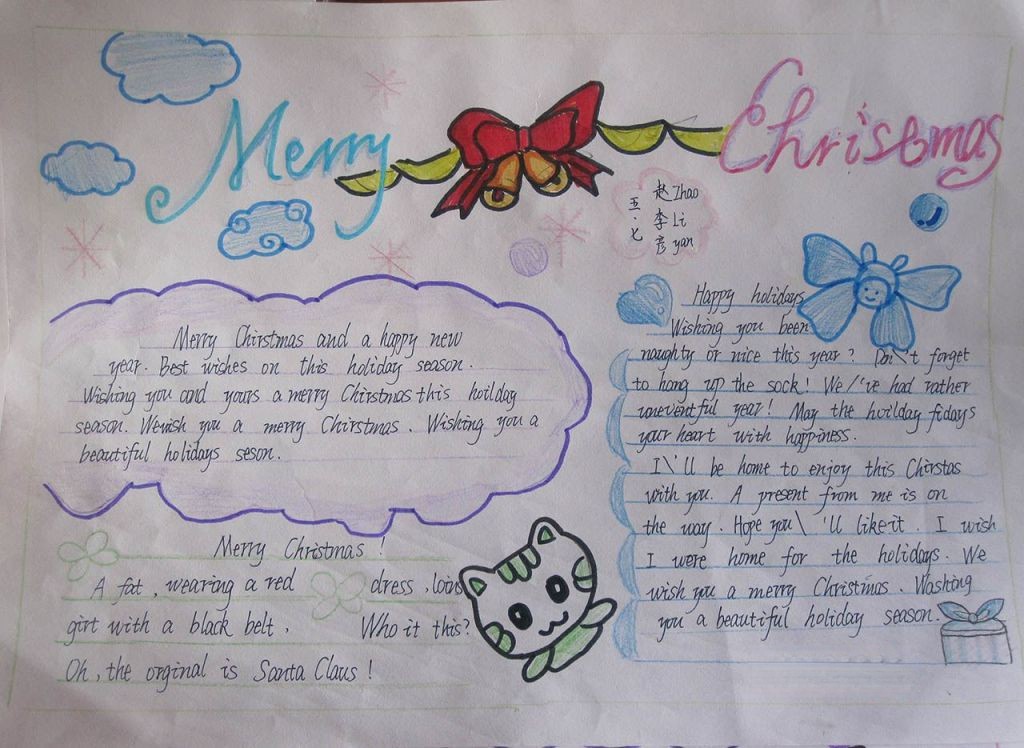 Merry Christmas
五·七
赵 Zhao
李 Li
彦 yan
Merry Chirstmas and a happy new
year. Best wishes on this holiday season.
Wishing you and yours a merry Chirstmas this hoilday
season. Wewish you a merry Chirstmas. Wishing you a
beautiful holidays seson.
Merry Christmas!
A fat, wearing a red dress, loins
girt with a black belt. Who it this?
Oh, the orginal is Santa Claus!
Happy holidays
Wishing you been
naughty or nice this year? Don\'t forget
to hang up the sock! We/'ve had rather
uneventful year! May the hoilday fidays
your heart with happiness.
I\'ll be home to enjoy this Chirstas
with you. A present from me is on
the way. Hope you\'ll like it. I wish
I were home for the holidays. We
wish you a merry Christmas. Washing
you a beautiful holiday season.